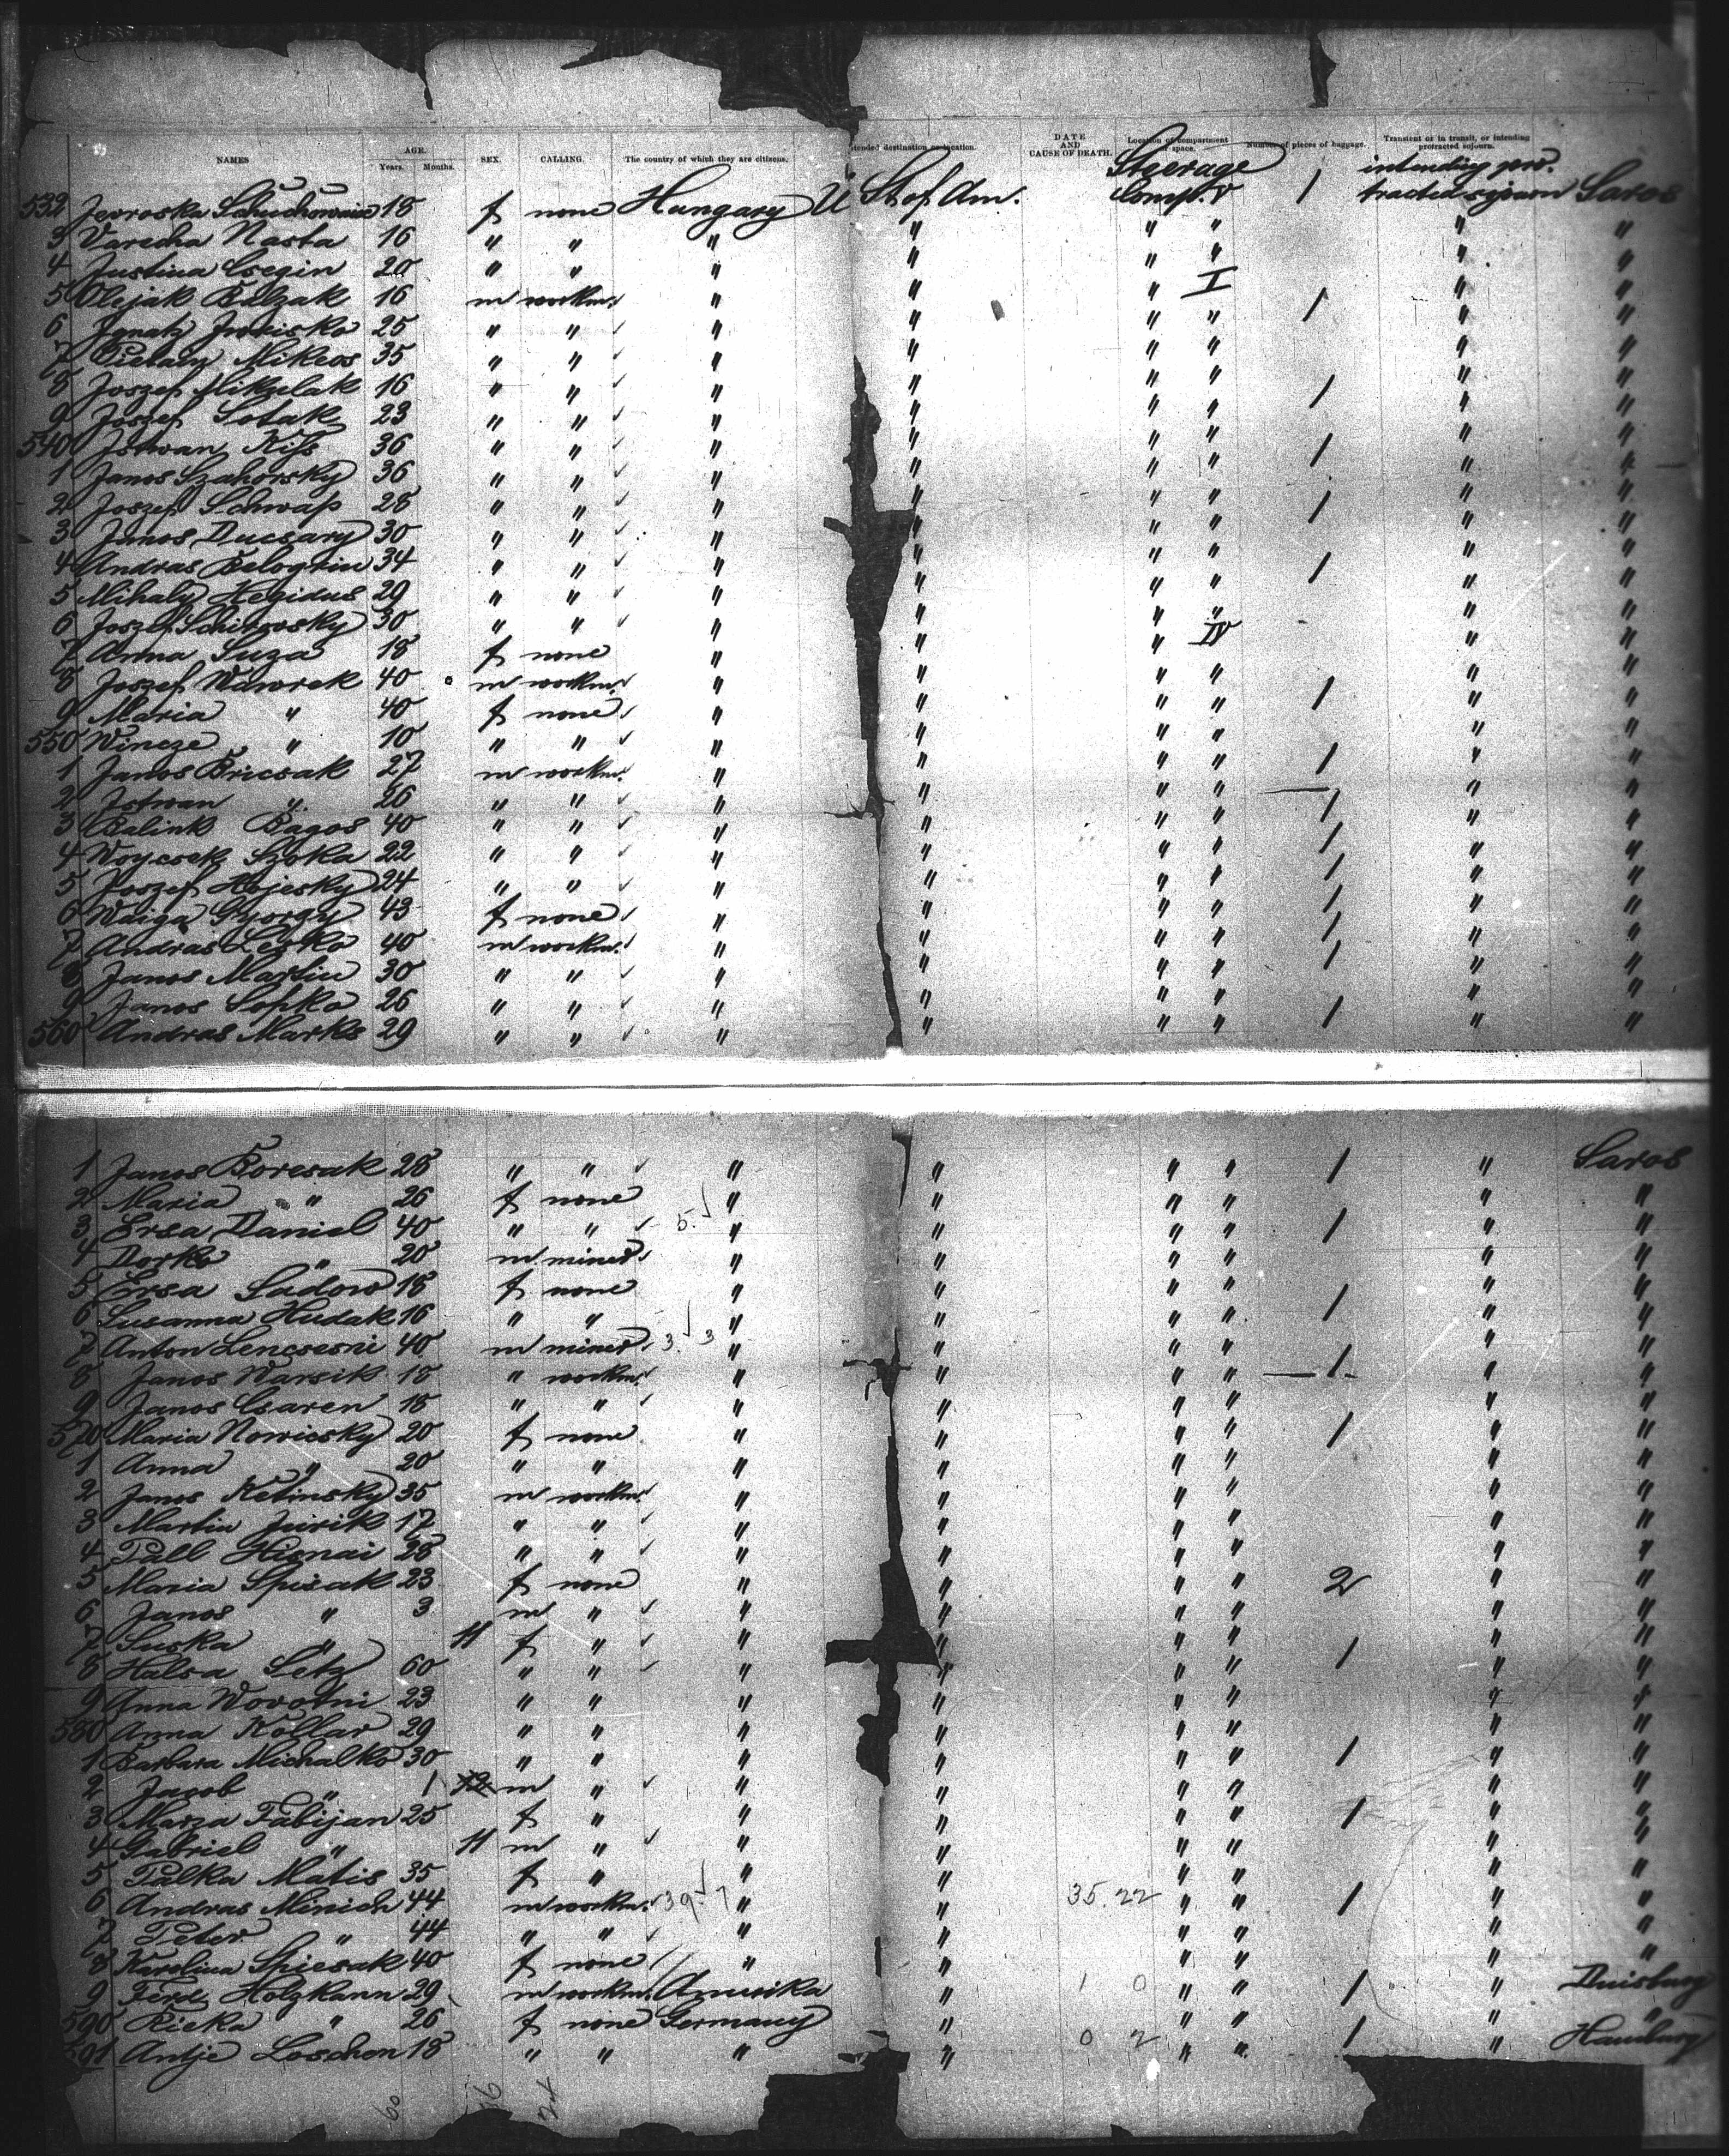 NAMES AGE. Years. Months. SEX. CALLING. The country of which they are citizens. Intended destination or location. DATE AND CAUSE OF DEATH. Location of compartment or space. Number of pieces of baggage. Transient or in transit, or intending protracted sojourn.
Steerage intending pro-
532 18 f none Hungary U St of Am. Comp. V / tracted sojourn Saros
3 Varecha Nasta 16 " " " " " " " "
4 Justina Csegin 20 " " " " " " " "
5 Olejak Balzak 16 m workm. " " " I / " "
6 Ignatz 25 " " " " " " " "
7 Mikcos 35 " " " " " " " "
8 Joszef Mikulak 16 " " " " " " / " "
9 Joszef Sotak 23 " " " " " " " "
540 Istwan Kiss 36 " " " " " " / " "
1 Janos Szahorsky 36 " " " " " " " "
2 Joszef Schwap 28 " " " " " " / " "
3 Janos Ducsary 30 " " " " " " " "
4 Andras 34 " " " " " " / " "
5 Mihaly Hegidus 29 " " " " " " " "
6 Joszef 30 " " " " " " " "
7 Anna Suza 18 f none " " " IV " "
8 Joszef Wawrek 40 m workm. " " " " / " "
9 Maria " 40 f none " " " " " "
550 Wincze " 10 " " " " " " " "
1 Janos Bricsak 27 m workm. " " " " / " "
2 Istwan " 26 " " " " " " / " "
3 Balink Bagos 40 " " " " " " / " "
4 Woycsek Szoka 22 " " " " " " / " "
5 Joszef Hojesky 24 " " " " " " / " "
6 Waiga Gyorgy 43 f none " " " " / " "
7 Andras Leszko 40 m workm. " " " " / " "
8 Janos Martin 30 " " " " " " " "
9 Janos Sopko 26 " " " " " " " "
560 Andras Marko 29 " " " " " " / " "
1 Janos Boresak 28 " " " " " " / " Saros
2 Maria " 26 f none " " " " " "
3 Ersa Daniel 40 " " 5. " " " " / " "
4 Dorko " 20 m miner " " " " " "
5 Ersa Sadow 18 f none " " " " " "
6 Susanna Hudak 16 " " " " " " / " "
7 Anton Lencsesni 40 m miner 3. 3 " " " " " "
8 Janos Warsik 18 " workm. " " " " / " "
9 Janos Csaren 18 " " " " " " " "
570 Maria Nowicsky 20 f none " " " " / " "
1 Anna " 20 " " " " " " " "
2 Janos Ketinsky 35 m workm. " " " " " "
3 Martin Juirik 17 " " " " " " " "
4 Pall Hienai 28 " " " " " " " "
5 Maria Spisak 23 f none " " " " 2 " "
6 Janos " 3 m " " " " " " "
7 Suska " 11 f " " " " " " "
8 Halsa Setz 60 " " " " " " / " "
9 Anna Worotni 23 " " " " " " " "
580 Anna Kollar 29 " " " " " " " "
1 Barbara Michalko 30 " " " " " " / " "
2 Jacob " 1 m " " " " " " "
3 Marza Fabijan 25 f " " " " " / " "
4 Gabriel " 11 m " " " " " " "
5 Palka Matis 35 f " " " " " " "
6 Andras Minich 44 m workm. 39. 7 " " 35. 22 " " / " "
7 Peter " 44 " " " " " " " "
8 Karolina Spiesak 40 f none " " " " " "
9 Ferd. Holzkann 29 m workm. Amerika " 1 0 " " / " Duisburg
590 Rieka " 26 f none Germany " " " " "
591 Antje Loschen 18 " " " " 0 2 " " / " Hamburg
60